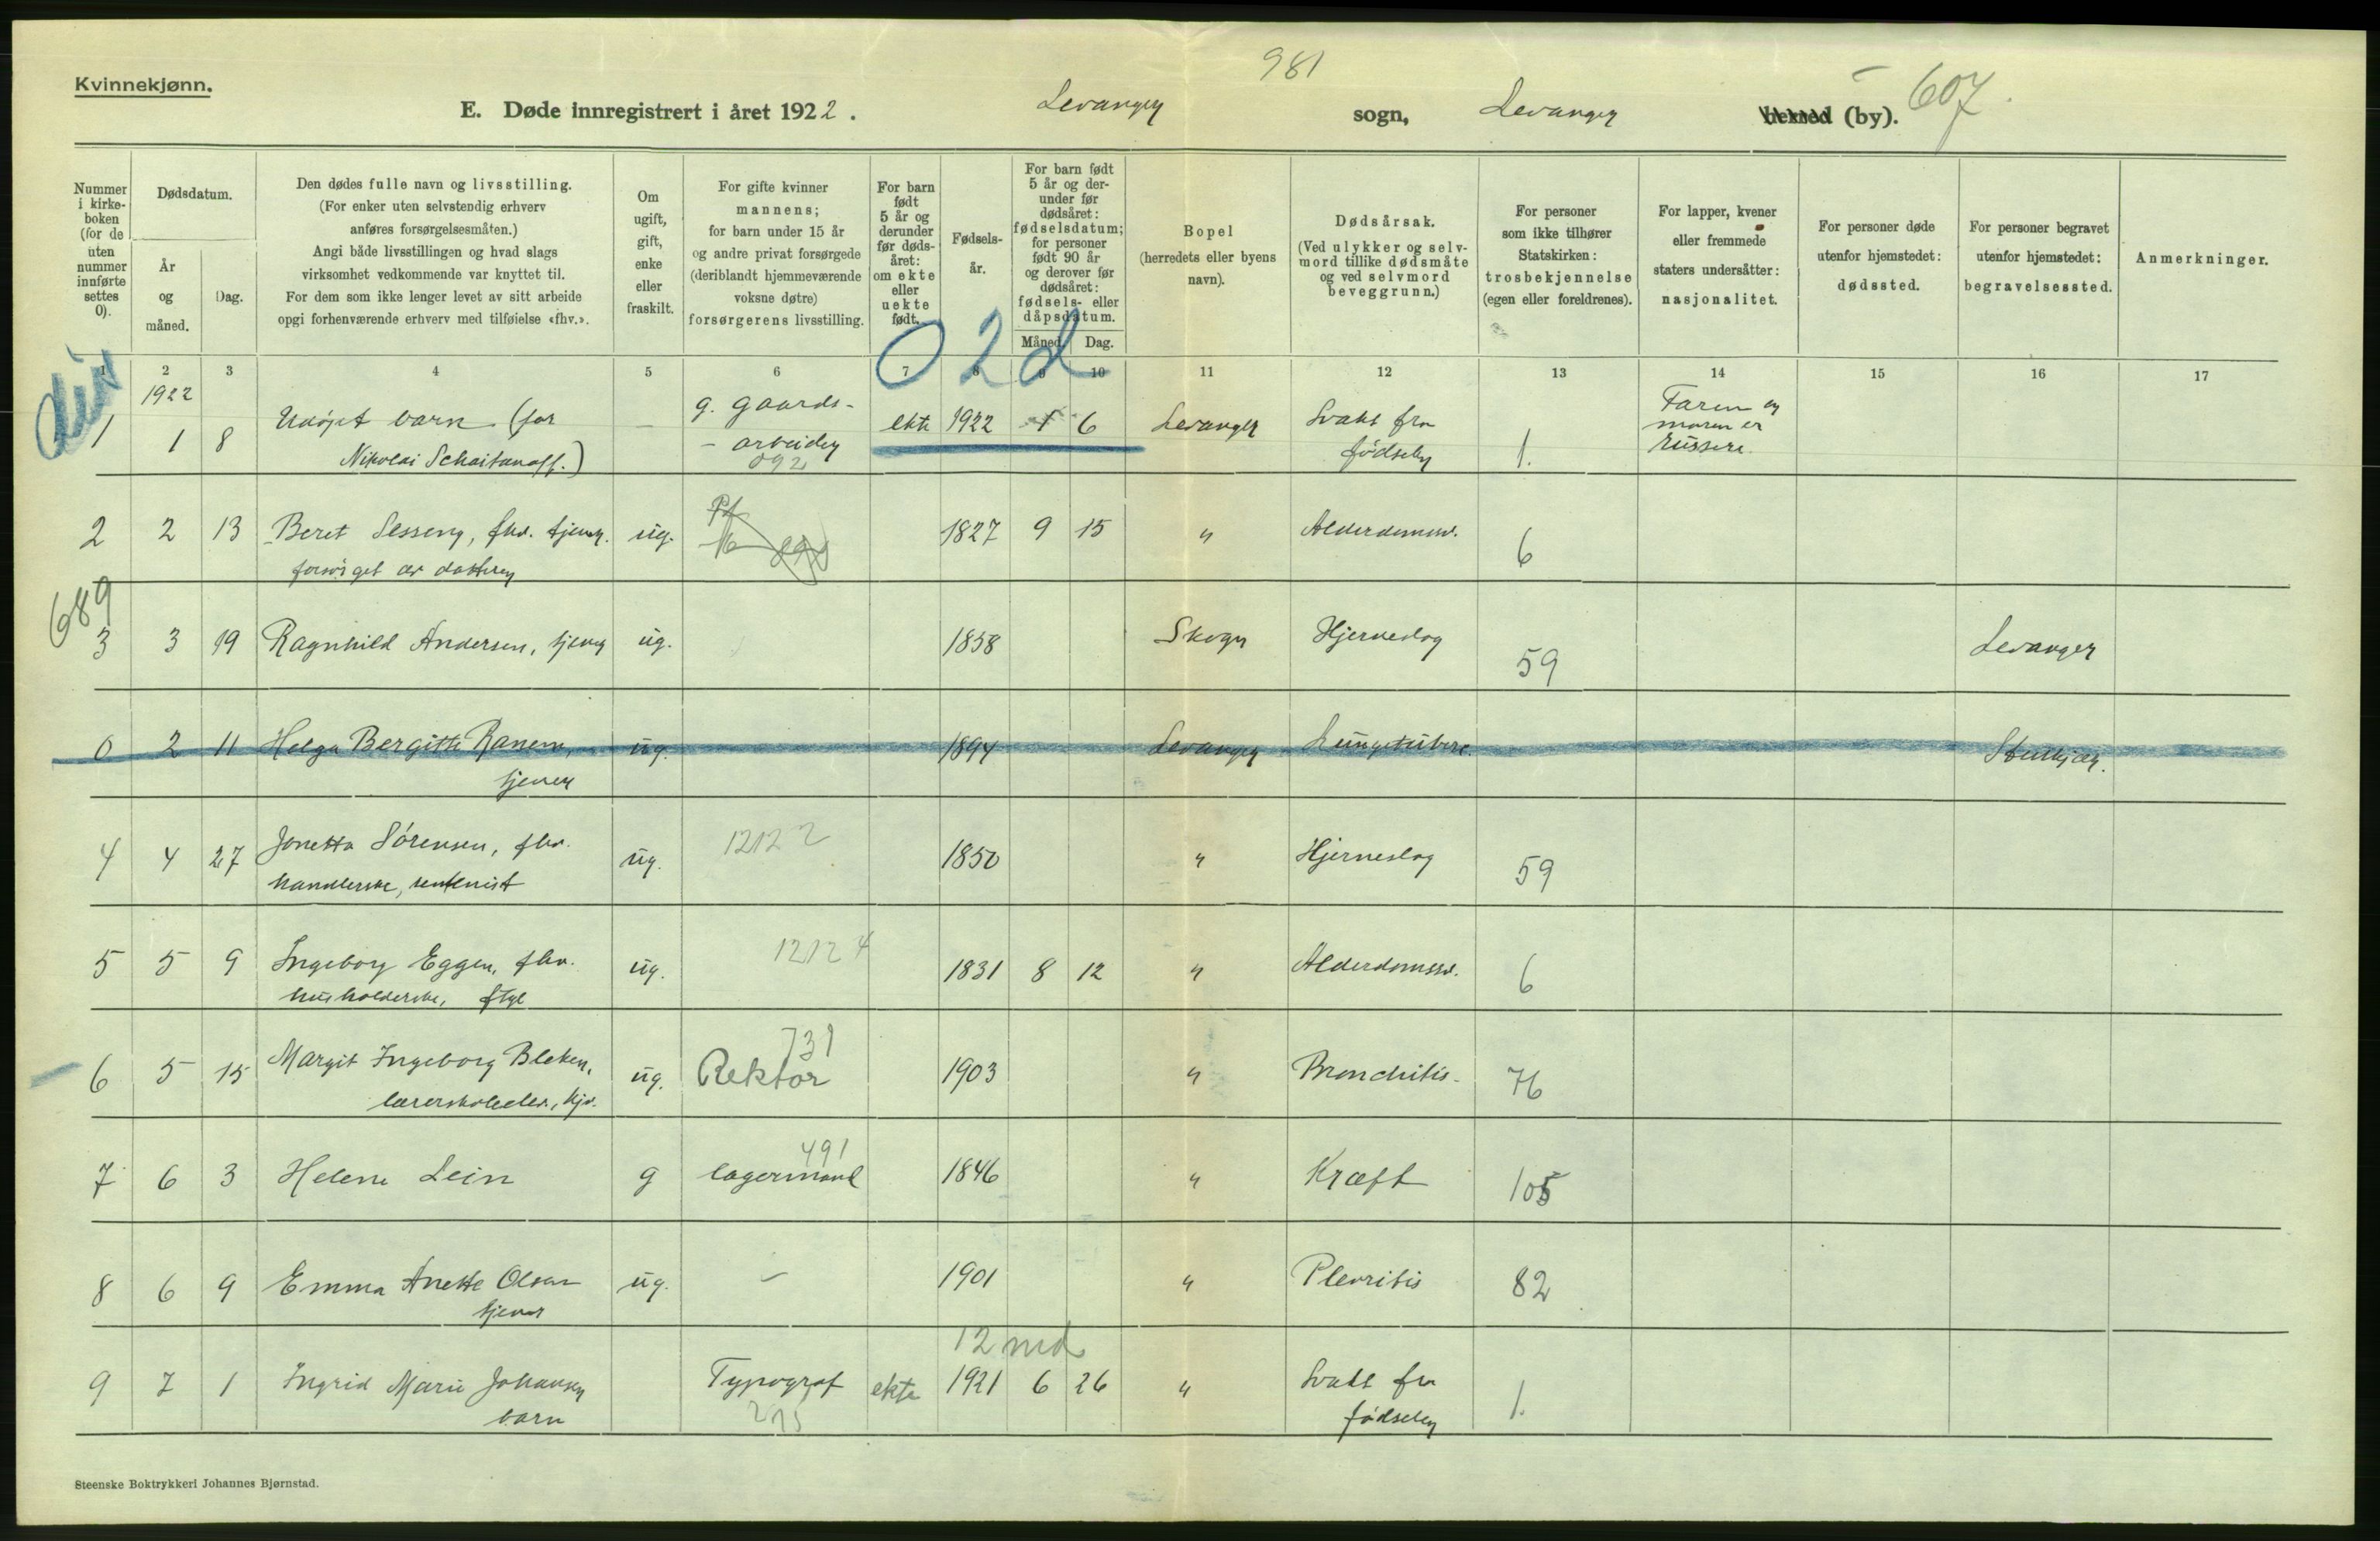 981
Kvinnekjønn.
E. Døde innregistrert i året 1922. Levanger sogn, Levanger herred (by). 607.
Nummer i kirke-boken (for de uten nummer innførte settes 0).
Dødsdatum.
År og måned.
Dag.
Den dødes fulle navn og livsstilling.
(For enker uten selvstendig erhverv
anføres forsørgelsesmåten.)
Angi både livsstillingen og hvad slags
virksomhet vedkommende var knyttet til.
For dem som ikke lenger levet av sitt arbeide
opgi forhenværende erhverv med tilføielse «fhv.».
Om ugift, gift, enke eller fraskilt.
For gifte kvinner
mannens;
for barn under 15 år
og andre privat forsørgede
(deriblandt hjemmeværende
voksne døtre)
forsørgerens livsstilling.
For barn født 5 år og derunder før døds-året: om ekte eller uekte født.
Fødsels-år.
For barn født 5 år og der-under før dødsåret: fødselsdatum; for personer født 90 år og derover før dødsåret: fødsels- eller dåpsdatum.
Måned. Dag.
Bopel
(herredets eller byens
navn).
Dødsårsak.
(Ved ulykker og selv-
mord tillike dødsmåte
og ved selvmord
beveggrunn.)
For personer
som ikke tilhører
Statskirken:
trosbekjennelse
(egen eller foreldrenes).
For lapper, kvener
eller fremmede
staters undersåtter:
nasjonalitet.
For personer døde
utenfor hjemstedet:
dødssted.
For personer begravet
utenfor hjemstedet:
begravelsessted.
Anmerkninger.
1 2 3 4 5 6 7 8 9 10 11 12 13 14 15 16 17
02d
1922
1 1 8 Udøpt barn (far — g. gaards- ekte 1922 1 6 Levanger Svakt fra 1. Faren og
Nikolai Schaitanoff.) - arbeider fødselen moren er
092 russere.
2 2 13 Beret Sesseng, fhv. tjener. ug. 1827 9 15 " Alderdomssv. 6
forsörget av datteren
689
3 3 19 Ragnhild Andersen, tjener ug. 1858 Skogn Hjerneslag 59 Levanger
0 2 11 Helga Bergitte Ranem, ug. 1894 Levanger Lungetuberc. Stenkjær.
tjener
4 4 27 Jonetta Sörensen, fhv. ug. 12122 1850 " Hjerneslag 59
handlerske, rentenist
5 5 9 Ingeborg Eggen, fhv. ug. 12124 1831 8 12 " Alderdomssv. 6
husholderske, ftgl
6 5 15 Margit Ingeborg Bleken, ug. 731 Rektor 1903 " Bronchitis. 76
lærerskoleelev, hjv.
7 6 3 Helene Lein g 491 lagermand 1846 " Kræft 105
8 6 9 Emma Anette Olsen ug. — 1901 " Plevritis 82
tjener
12 md
9 7 1 Ingrid Marie Johansen Typograf ekte 1921 6 26 " Svakt fra 1.
barn 215 fødselen
Steenske Boktrykkeri Johannes Bjørnstad.